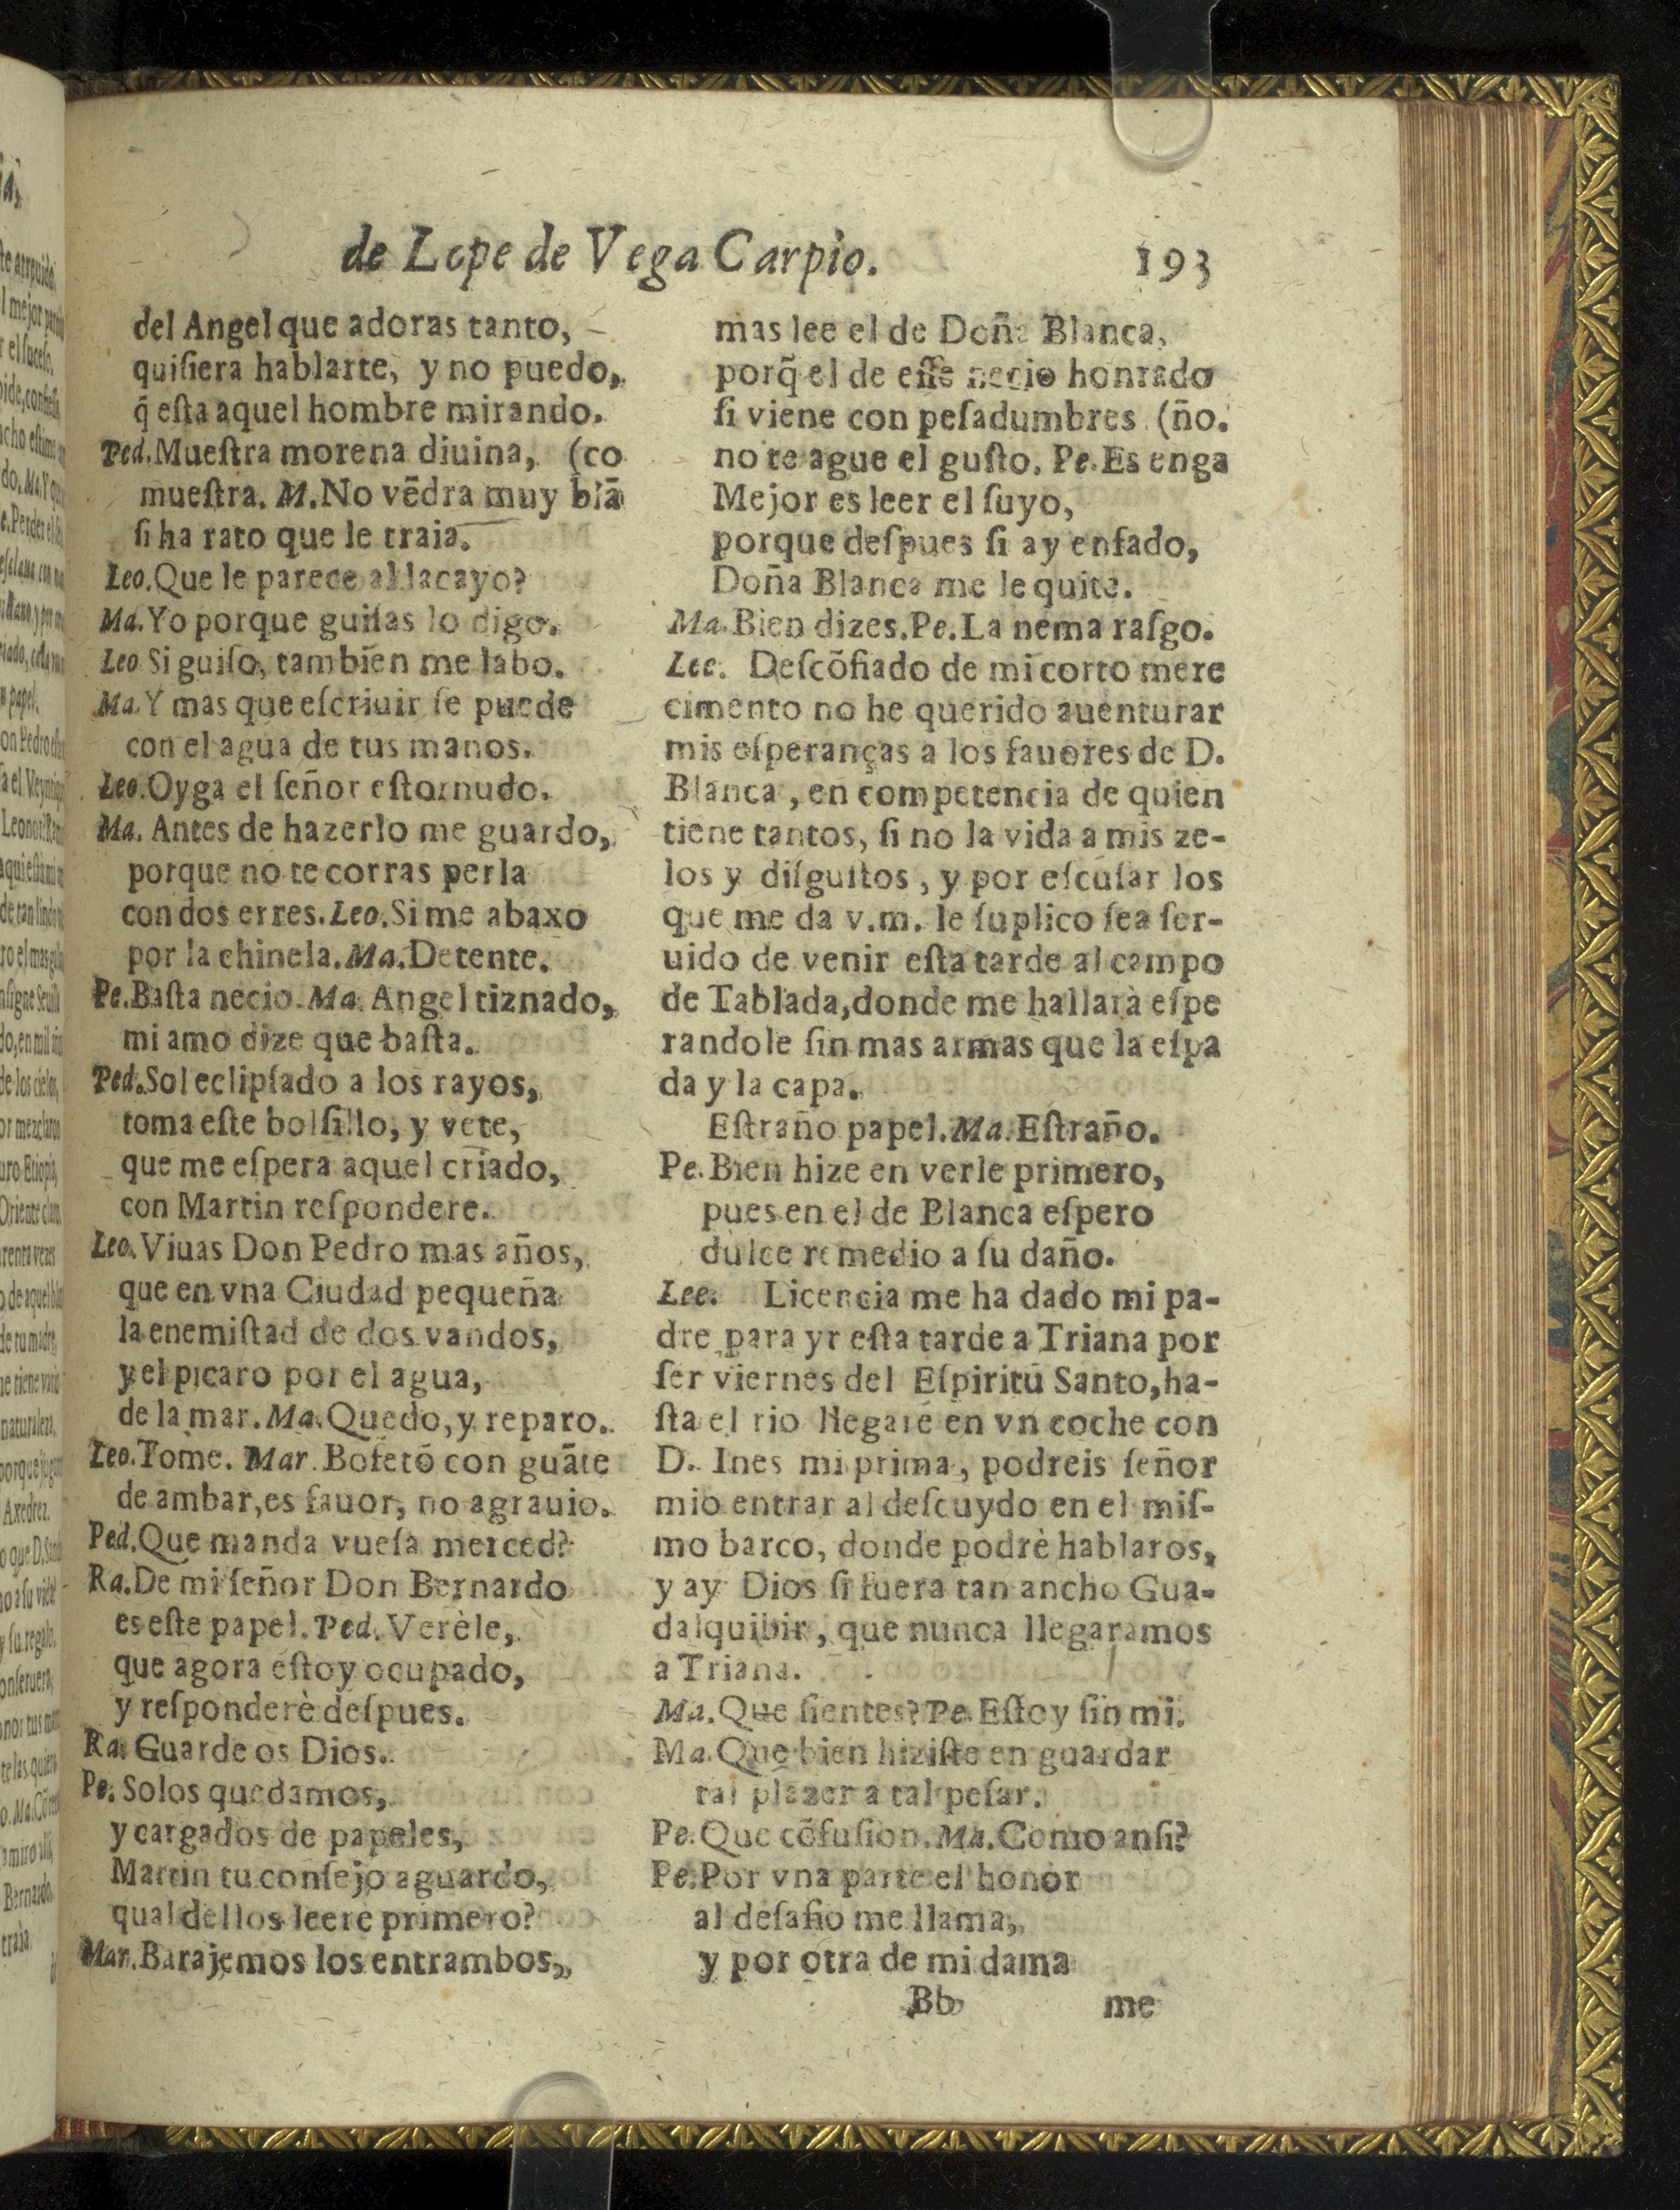 de Lope de Vega Carpio. 193
del Angel que adoras tanto,
quiſiera hablarte, y no puedo,
q̃ eſta aquel hombre mirando.
Ped. Mueſtra morena diuina, (co
mueſtra. M. No vẽdra muy blã
ſi ha rato que le traia.
Leo. Que le parece al lacayo?
Ma. Yo porque guiſas lo digo.
Leo Si guiſo, tambien me labo.
Ma. Y mas que eſcriuir ſe puede
con el agua de tus manos.
Leo. Oyga el ſeñor eſtornudo.
Ma. Antes de hazerlo me guardo,
porque no te corras perla
con dos erres. Leo. Si me abaxo
por la chinela. Ma. Detente.
Pe. Baſta necio. Ma. Angel tiznado,
mi amo dize que baſta.
Ped. Sol eclipſado a los rayos,
toma eſte bolſillo, y vete,
que me eſpera aquel criado,
con Martin reſpondere.
Leo. Viuas Don Pedro mas años,
que en vna Ciudad pequeña
la enemiſtad de dos vandos,
y el picaro por el agua,
de la mar. Ma. Quedo, y reparo.
Leo. Tome. Mar. Bofetõ con guãte
de ambar, es fauor, no agrauio.
Ped. Que manda vueſa merced?
Ra. De mi ſeñor Don Bernardo
es eſte papel. Ped. Verèle,
que agora eſtoy ocupado,
y reſponderè deſpues.
Ra. Guarde os Dios.
Pe. Solos quedamos,
y cargados de papeles,
Martin tu conſejo aguardo,
qual dellos leere primero?
Mar. Barajemos los entrambos,
mas lee el de Doña Blanca,
porq̃ el de eſſe necio honrado
ſi viene con peſadumbres (ño.
no te ague el guſto. Pe. Es enga
Mejor es leer el ſuyo,
porque deſpues ſi ay enfado,
Doña Blanca me le quite.
Ma. Bien dizes. Pe. La nema raſgo.
Lee. Deſcõfiado de mi corto mere
cimento no he querido auenturar
mis eſperanças a los fauores de D.
Blanca, en competencia de quien
tiene tantos, ſi no la vida a mis ze-
los y diſguſtos, y por eſcuſar los
que me da v.m. le ſuplico ſea ſer-
uido de venir eſta tarde al campo
de Tablada, donde me hallarà eſpe
randole ſin mas armas que la eſpa
da y la capa.
Eſtraño papel. Ma. Eſtraño.
Pe. Bien hize en verle primero,
pues en el de Blanca eſpero
dulce remedio a ſu daño.
Lee. Licencia me ha dado mi pa-
dre para yr eſta tarde a Triana por
ſer viernes del Eſpiritu Santo, ha-
ſta el rio llegarè en vn coche con
D. Ines mi prima, podreis ſeñor
mio entrar al deſcuydo en el miſ-
mo barco, donde podrè hablaros,
y ay Dios ſi fuera tan ancho Gua-
dalquibir, que nunca llegaramos
a Triana.
Ma. Que ſientes? Pe. Eſtoy ſin mi.
Ma. Que bien hiziſte en guardar
tal plazer a tal peſar.
Pe. Que cõfuſion. Ma. Como anſi?
Pe. Por vna parte el honor
al deſafio me llama,
y por otra de mi dama
Bb me